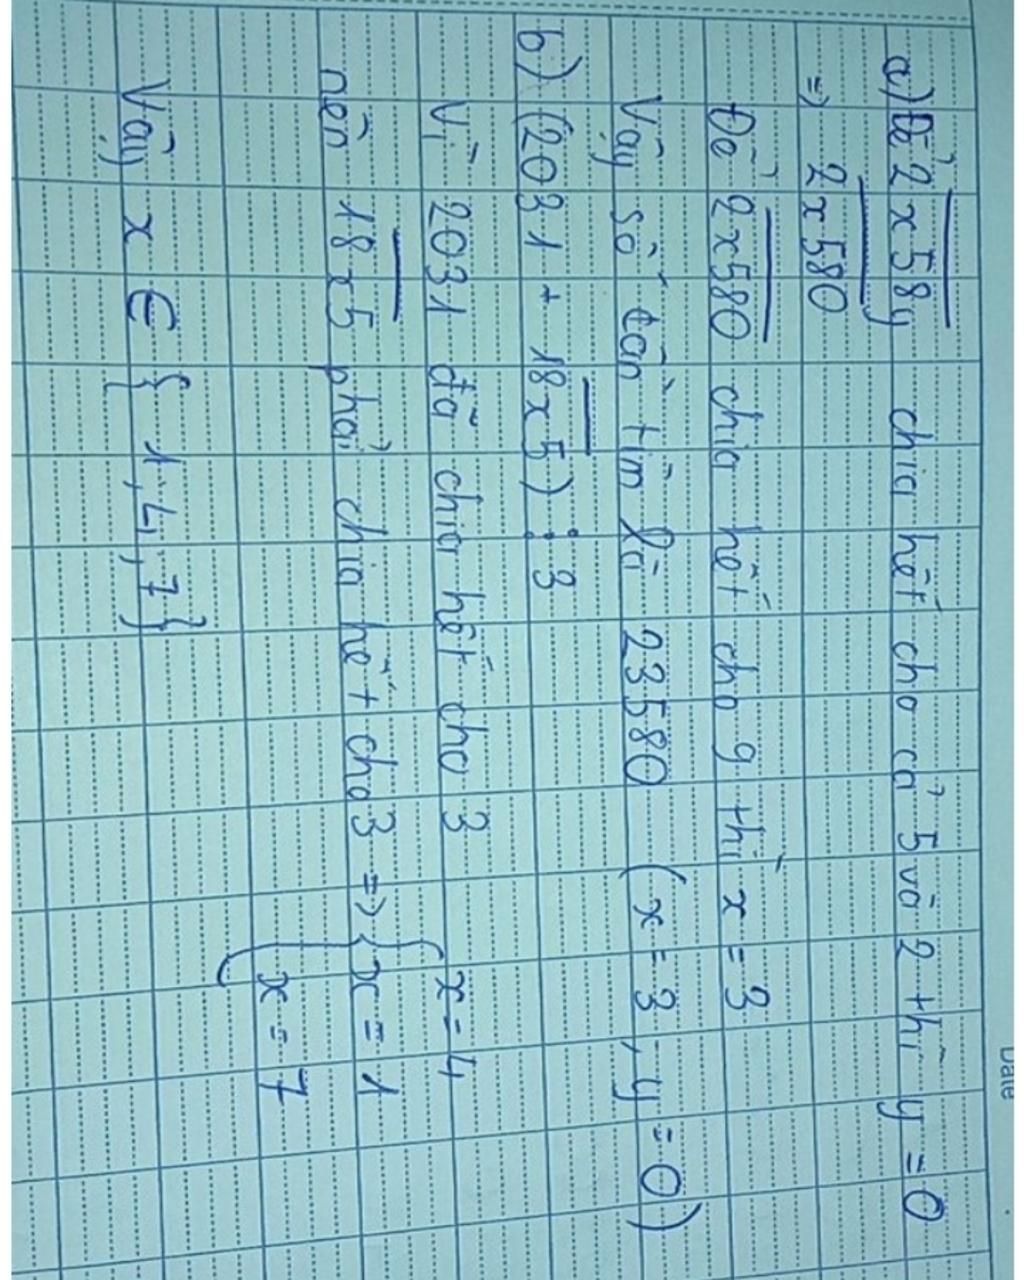 Date
a) Để 2x58y chia hết cho cả 5 và 2 thì y = 0
=> 2x580
Để 2x580 chia hết cho 9 thì x = 3
Vậy số cần tìm là 23580 (x = 3, y = 0)
b) (2031 + 18x5) ⋮ 3
Vì 2031 đã chia hết cho 3
x = 4
nên 18x5 phải chia hết cho 3 => { x = 1
x = 7
Vậy x ∈ { 1, 4, 7 }